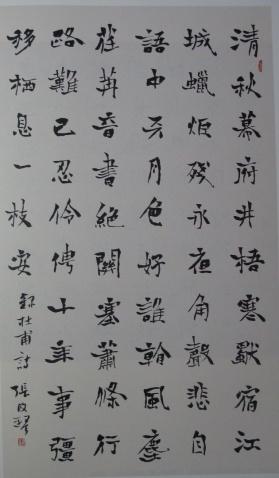 清秋幕府井梧寒獨宿江
城蠟炬殘永夜角聲悲自
語中天月色好誰看風塵
荏苒音書絶關塞蕭條行
路難已忍伶俜十年事彊
移栖息一枝安 録杜甫詩 張